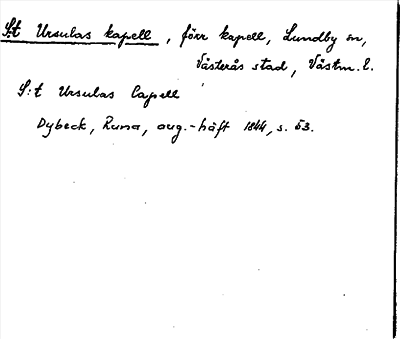 S:t Ursulas kapell, förr kapell, Lundby sn,
Västerås stad, Västm. l.
S:t Ursulas Capell
Dybeck, Runa, aug.-häft 1844, s. 53.